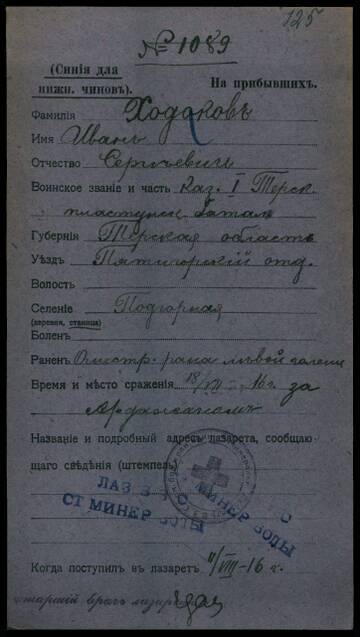 125
№ 1089
(Синія для
нижн. чиновъ).
На прибывшихъ.
Фамилія Ходаковъ
Имя Иванъ
Отчество Сергѣевичъ
Воинское званіе и часть Каз. I Терск.
пластунск. батал.
Губернія Терская область
Уѣздъ Пятигорскій отд.
Волость
Селеніе Подгорная
(деревня, станица)
Боленъ
Раненъ Огнестр. рана лѣвой голени
Время и мѣсто сраженія 18/VII - 16 г. за
Время и подробный адресъ лазарета, сообщаю-
щаго свѣдѣнія (штемпель)
ЛАЗ
СТ МИНЕР ВОДЫ
МИНЕР ВОДЫ
Когда поступилъ въ лазаретъ 11/VIII - 16 г.
старшій врачъ лазарета